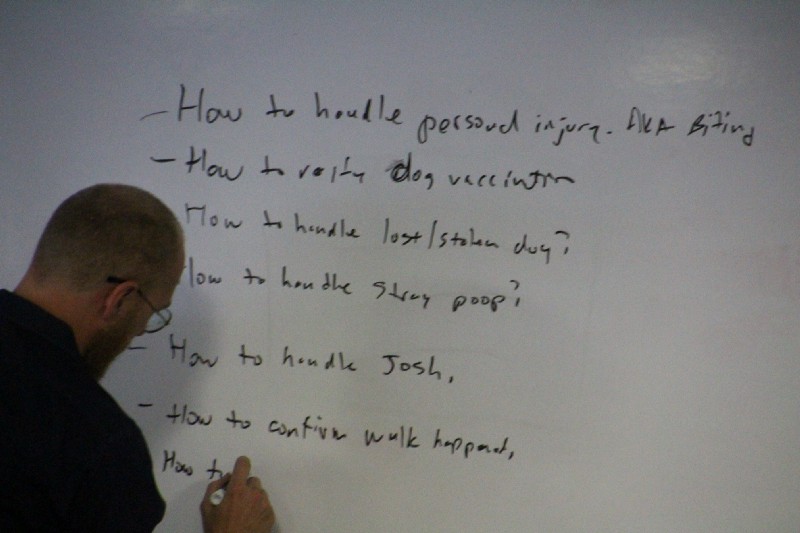 - How to handle personal injury. AKA Biting
- How to verify dog vaccination
How to handle lost/stolen dog?
How to handle stray poop?
- How to handle Josh,
- How to confirm walk happened,
How to